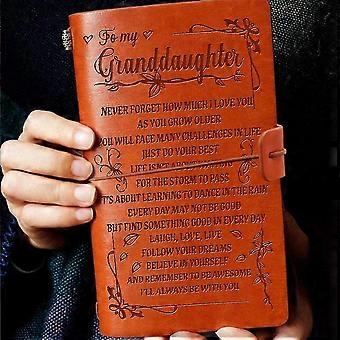 To my
Granddaughter
NEVER FORGET HOW MUCH I LOVE YOU
AS YOU GROW OLDER
YOU WILL FACE MANY CHALLENGES IN LIFE
JUST DO YOUR BEST
LIFE ISN'T ABOUT
FOR THE STORM TO PASS
IT'S ABOUT LEARNING TO DANCE IN THE RAIN
EVERY DAY MAY NOT BE GOOD
BUT FIND SOMETHING GOOD IN EVERY DAY
LAUGH, LOVE, LIVE
FOLLOW YOUR DREAMS
BELIEVE IN YOURSELF
AND REMEMBER TO BE AWESOME
I'LL ALWAYS BE WITH YOU